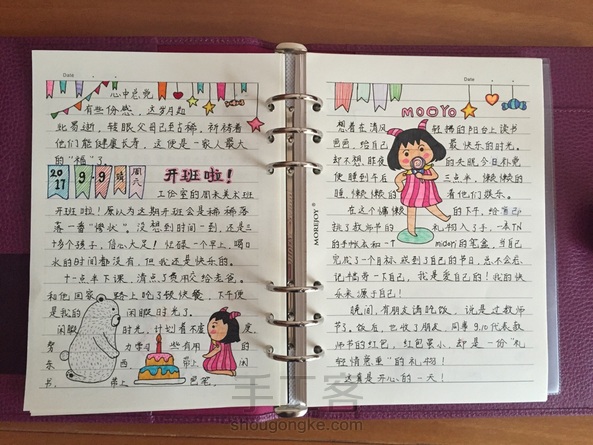 Date
心中总觉
有些伤感，这岁月如
此易逝，转眼父母已至古稀，祈祷着
他们能健康长寿，这便是一家人最大
的"福"了。
2017
9-9
晴
周六
开班啦！
工作室的周末美术班
开班啦！原以为这期开班会是稀稀落
落一番"惨状"。没想到时间一到，还是三
十多个孩子，信心大足！忙碌一个早上，喝口
水的时间都没有，但我还是快乐的。
十一点半下课，清点了费用交给老爸。
和他回家，路上吃了顿快餐，下午便
是我的闲暇时光了。
闲暇时光，计划着不虚度，
努力学习一些有用的
东西，带上闲
书，带上画笔。
MOREJOY
Date
MOOYO
想着在清风轻拂的阳台上读书
画画，给自己最快乐的时光。
却不想，昨夜的失眠，今日补觉
便睡到午后三点半，懒懒的
睡，懒懒的看他们娱乐。
在这个慵懒的下午，给自己
挑了教师节的礼物入了手，一本TN
的手帐本和一个midori的笔盒，当自己
完成了一个目标，或到了自己的节日，总不会忘
记犒劳一下自己，我是爱自己的！我的快
乐来源于自己！
晚间，有朋友请吃饭，说是过教师
节了。饭后，也收了朋友、同事的几代表教
师节的红包，红包虽小，却是一份"礼
轻情意重"的礼物！
这真是开心的一天！
手工客
shougongke.com